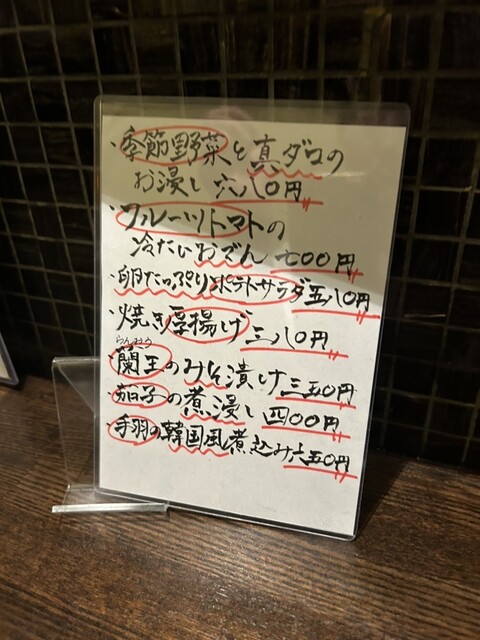 ・季節野菜と真ダコの
お浸し 六八〇円
・フルーツトマトの
冷たいおでん 七〇〇円
・卵たっぷりポテトサラダ 五八〇円
・焼き厚揚げ 三八〇円
らんおう
・蘭王のみそ漬け 三五〇円
・茄子の煮浸し 四〇〇円
・手羽の韓国風煮込み 六五〇円